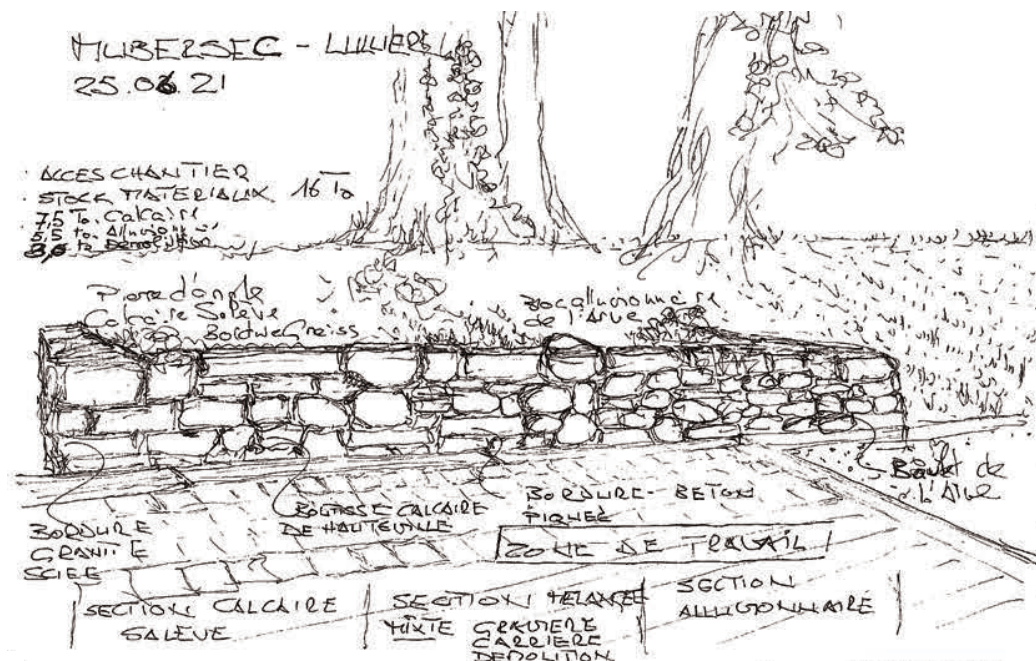 MUBERSEC - LULLIERS
25.06.21
· ACCES CHANTIER
· STOCK MATERIAUX 16 To
7,5 To. Calcaire
5,5 to.
to Demolition
Pierre d'angle
Calcaire Salève
Bordure Gneiss
Bloc alluvionnaire
de l'Arve
Boulet de
l'Arve
BORDURE
GRANITE
SCIEE
BOUTISSE CALCAIRE
DE HAUTEVILLE
BORDURE - BETON
PIQUEE
ZONE DE TRAVAIL
SECTION CALCAIRE
SALÈVE
SECTION MELANGEE
MIXTE GRAVIERE
CARRIERE
DEMOLITION
SECTION
ALLUVIONNAIRE